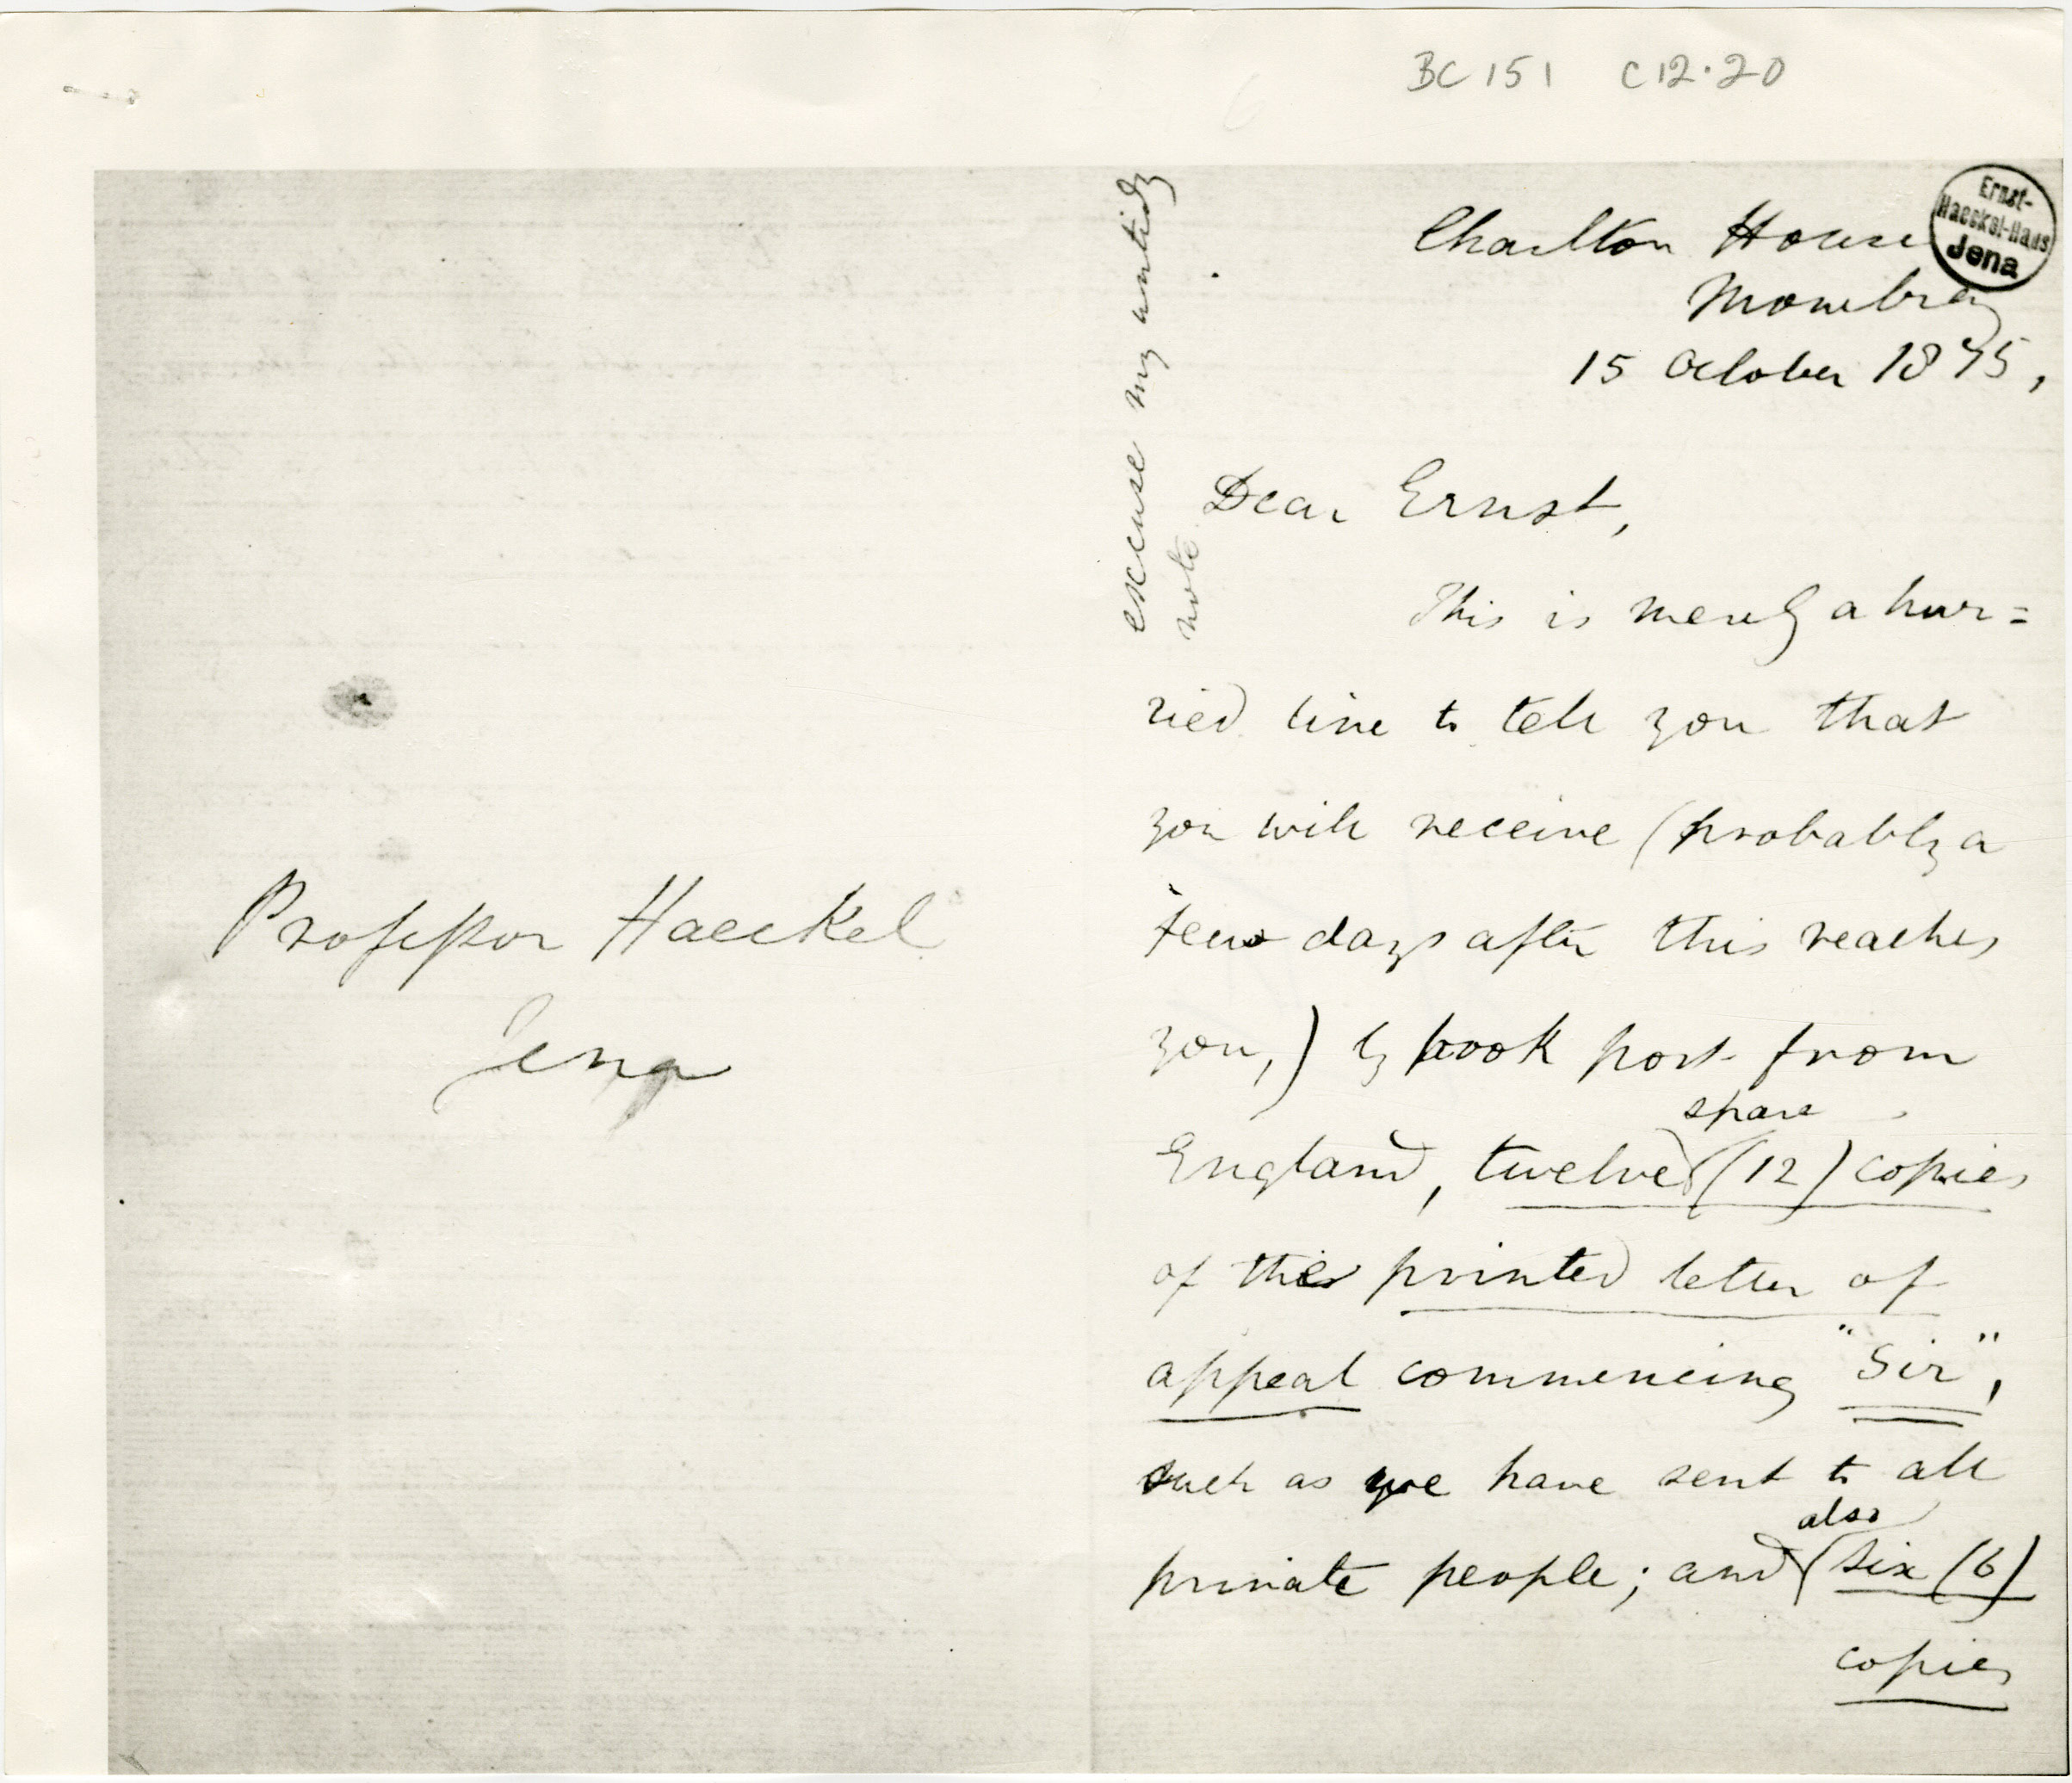 BC 151 C12.20
Professor Haeckel
Jena
excuse my untidy
note
Ernst-
Haeckel-Haus
Jena
Charlton House
Mowbray
15 October 1875,
Dear Ernst,
This is merely a hur=
ried line to tell you that
you will receive (probably a
few days after this reaches
you,) by book post from
spare
England, twelve (12) copies
of the printed letter of
appeal commencing "Sir",
such as we have sent to all
also
private people; and six (6)
copies